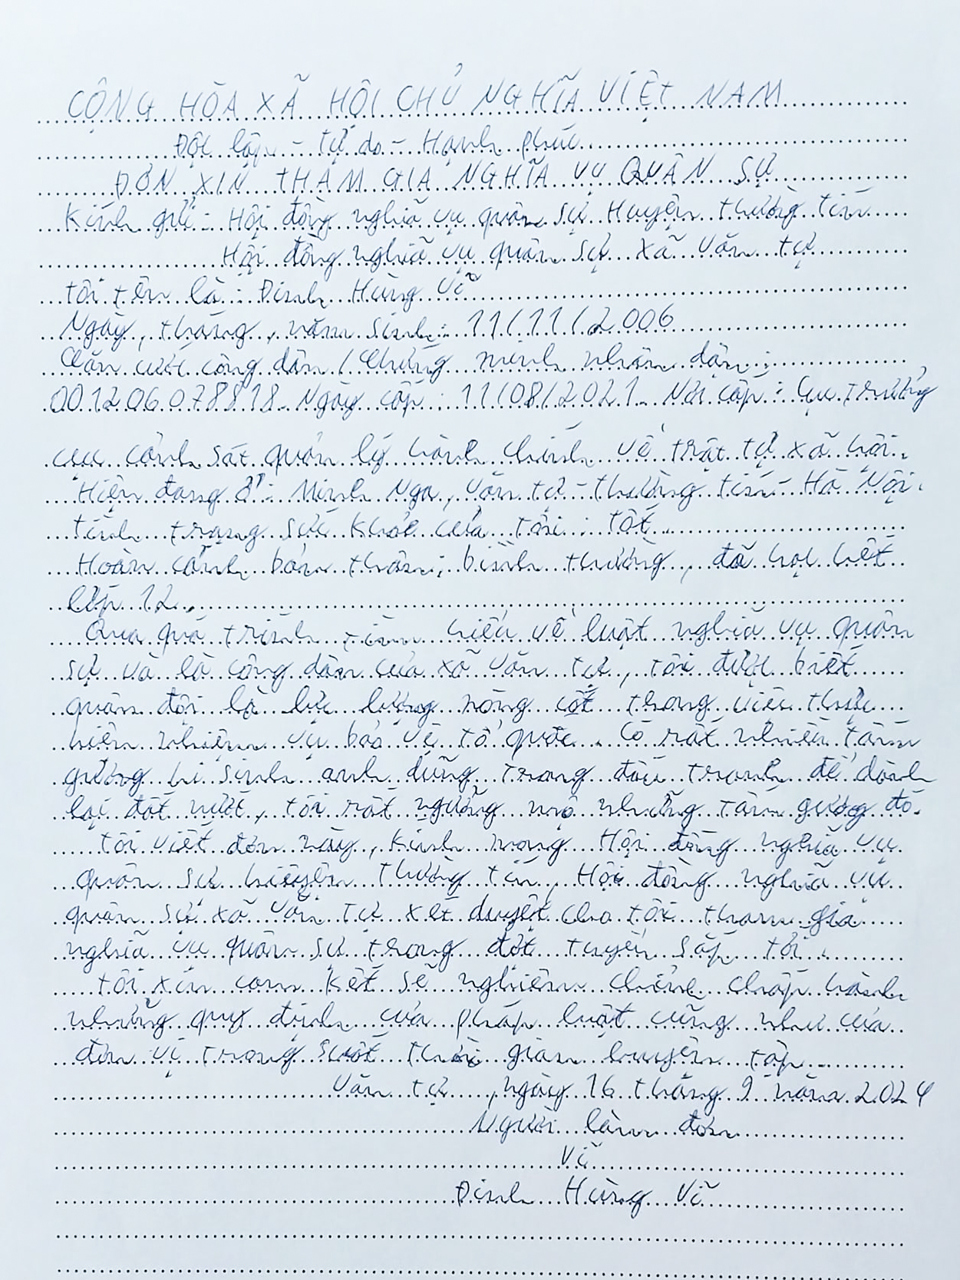 CỘNG HÒA XÃ HỘI CHỦ NGHĨA VIỆT NAM
Độc lập - Tự do - Hạnh phúc
ĐƠN XIN THAM GIA NGHĨA VỤ QUÂN SỰ
Kính gửi: Hội đồng nghĩa vụ quân sự Huyện thường tín
Hội đồng nghĩa vụ quân sự xã Văn tự
tôi tên là: Đinh Hùng Vĩ
Ngày, tháng, năm sinh: 11/11/2006
Căn cước công dân / Chứng minh nhân dân:
001206078818 Ngày cấp: 11/08/2021 Nơi cấp: Cục trưởng
cục cảnh sát quản lý hành chính về trật tự xã hội.
Hiện đang ở: Minh Nga, Văn tự - thường tín - Hà Nội.
tình trạng sức khỏe của tôi: tốt
Hoàn cảnh bản thân: bình thường, đã học hết
lớp 12.
Qua quá trình tìm hiểu về luật nghĩa vụ quân
sự và là công dân của xã Văn tự, tôi được biết
quân đội là lực lượng nòng cốt trong việc thực
hiện nhiệm vụ bảo vệ tổ quốc. Có rất nhiều tấm
gương hi sinh anh dũng trong đấu tranh để dành
lại đất nước, tôi rất ngưỡng mộ những tấm gương đó.
tôi viết đơn này, kính mong Hội đồng nghĩa vụ
quân sự huyện thường tín, Hội đồng nghĩa vụ
quân sự xã Văn tự xét duyệt cho tôi tham gia
nghĩa vụ quân sự trong đợt tuyển sắp tới.
tôi xin cam kết sẽ nghiêm chỉnh chấp hành
những quy định của pháp luật cũng như của
đơn vị trong suốt thời gian luyện tập.
Văn tự, ngày 16 tháng 9 năm 2024
Người làm đơn
Vĩ
Đinh Hùng Vĩ